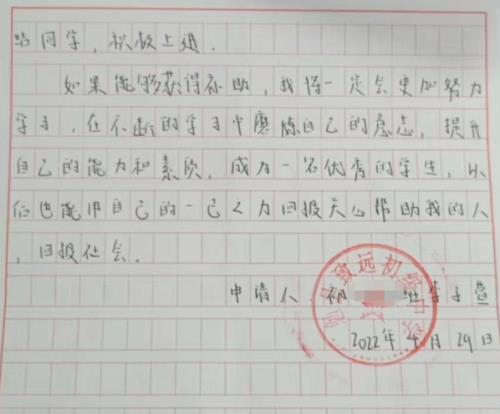 给同学，积极上进．
如果能够获得补助，我将一定会更加努力
学习，在不断的学习中磨炼自己的意志，提升
自己的能力和素质，成为一名优秀的学生，以
后也能用自己的一己之力回报关心帮助我的人
，回报社会．
申请人
致远初级中学
2022年4月29日